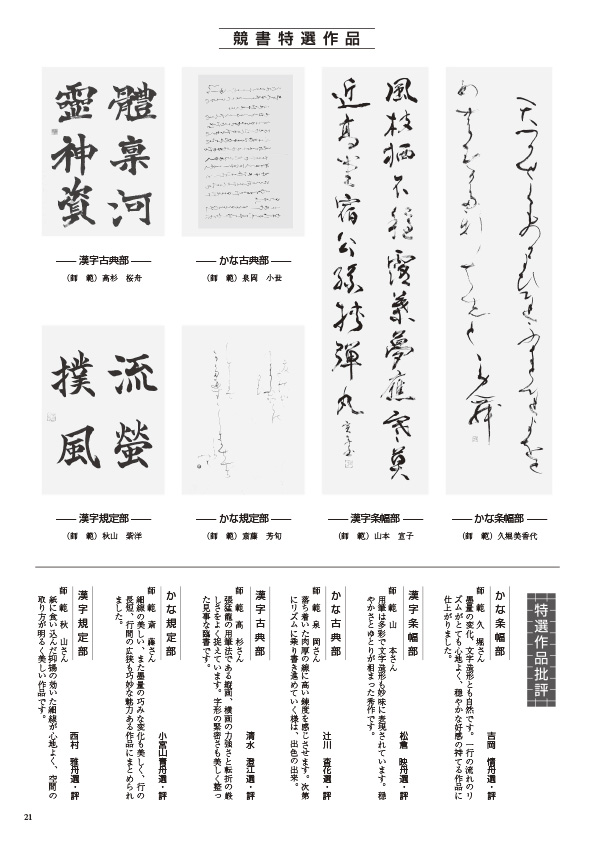 競書特選作品
體稟河
靈神資
漢字古典部
（師　範）高杉　桜舟
かな古典部
（師　範）泉岡　小世
流螢
撲風
漢字規定部
（師　範）秋山　紫洋
かな規定部
（師　範）斎藤　芳旬
風枝栖不穏露葉夢應寒莫
近高堂宿公孫挟弾丸
漢字条幅部
（師　範）山本　宜子
かな条幅部
（師　範）久堀美香代
特選作品批評
かな条幅部
吉岡　情舟選・評
師　範　久　堀さん
墨量の変化、文字造形とも自然です。一行の流れのリ
ズムがとても心地よく、穏やかな好感の持てる作品に
仕上がりました。
漢字条幅部
松倉　映舟選・評
師　範　山　本さん
用筆は多彩で文字造形も妙味に表現されています。穏
やかさとゆとりが相まった秀作です。
かな古典部
辻川　杳花選・評
師　範　泉　岡さん
落ち着いた肉厚の線に高い練度を感じさせます。次第
にリズムに乗り書き進めていく様は、出色の出来。
漢字古典部
清水　澄江選・評
師　範　高　杉さん
張猛龍の用筆法である縦画、横画の力強さと転折の厳
しさをよく捉えています。字形の緊密さも美しく整っ
た見事な臨書です。
かな規定部
小宮山青舟選・評
師　範　斎　藤さん
細線の美しい、また墨量の巧みな変化も美しく、行の
長短、行間の広狭も巧妙な魅力ある作品にまとめられ
ました。
漢字規定部
西村　雅舟選・評
師　範　秋　山さん
紙に食い込んだ抑揚の効いた細線が心地よく、空間の
取り方が明るく美しい作品です。
21